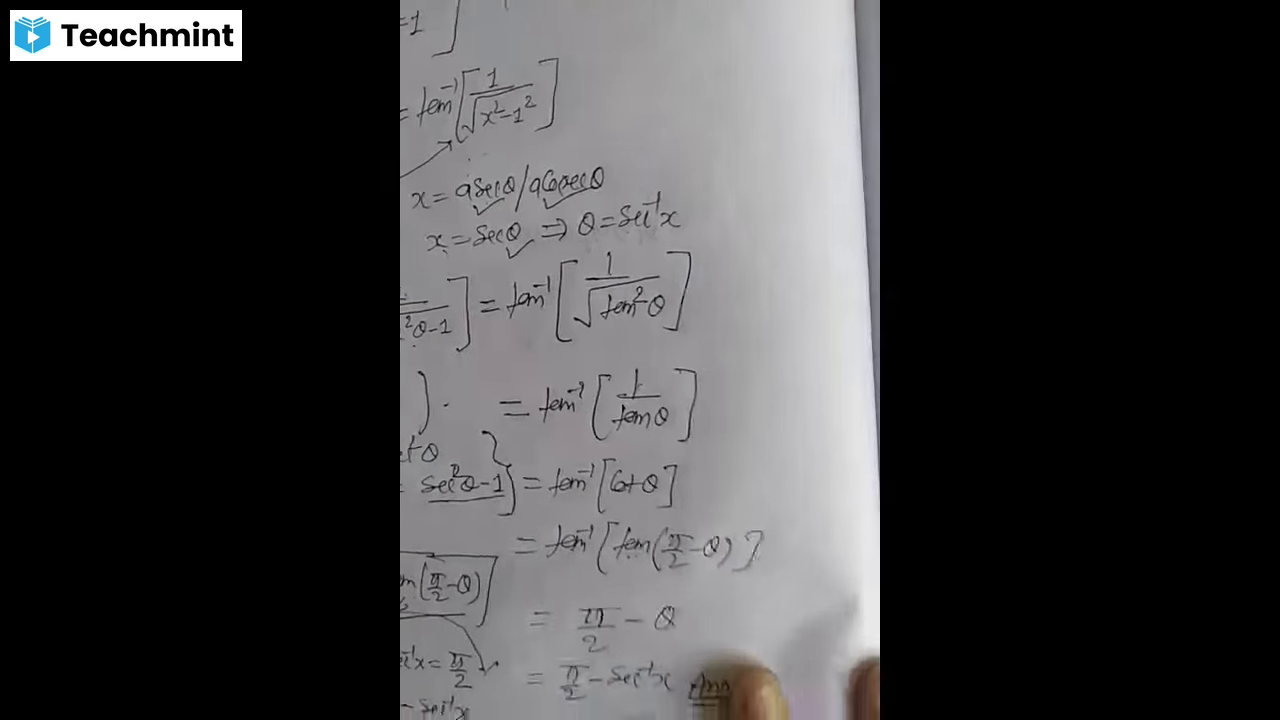 Teachmint
=1 ]
= tan⁻¹[1/√(x²-1²)]
x = a secθ / a cosecθ
x = secθ ⇒ θ = sec⁻¹x
²θ-1 ] = tan⁻¹[1/√(tan²θ)]
= tan⁻¹[1/tanθ]
sec²θ-1 } = tan⁻¹[cotθ]
= tan⁻¹[tan(π/2 - θ)]
(π/2 - θ) ]
= π/2 - θ
x = π/2
= π/2 - sec⁻¹x Ans
- sec⁻¹x